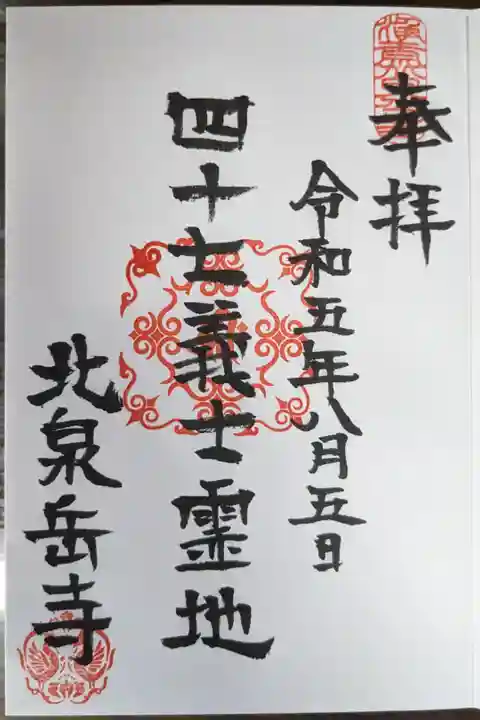 奉拝
令和五年八月五日
四十七義士霊地
北泉岳寺